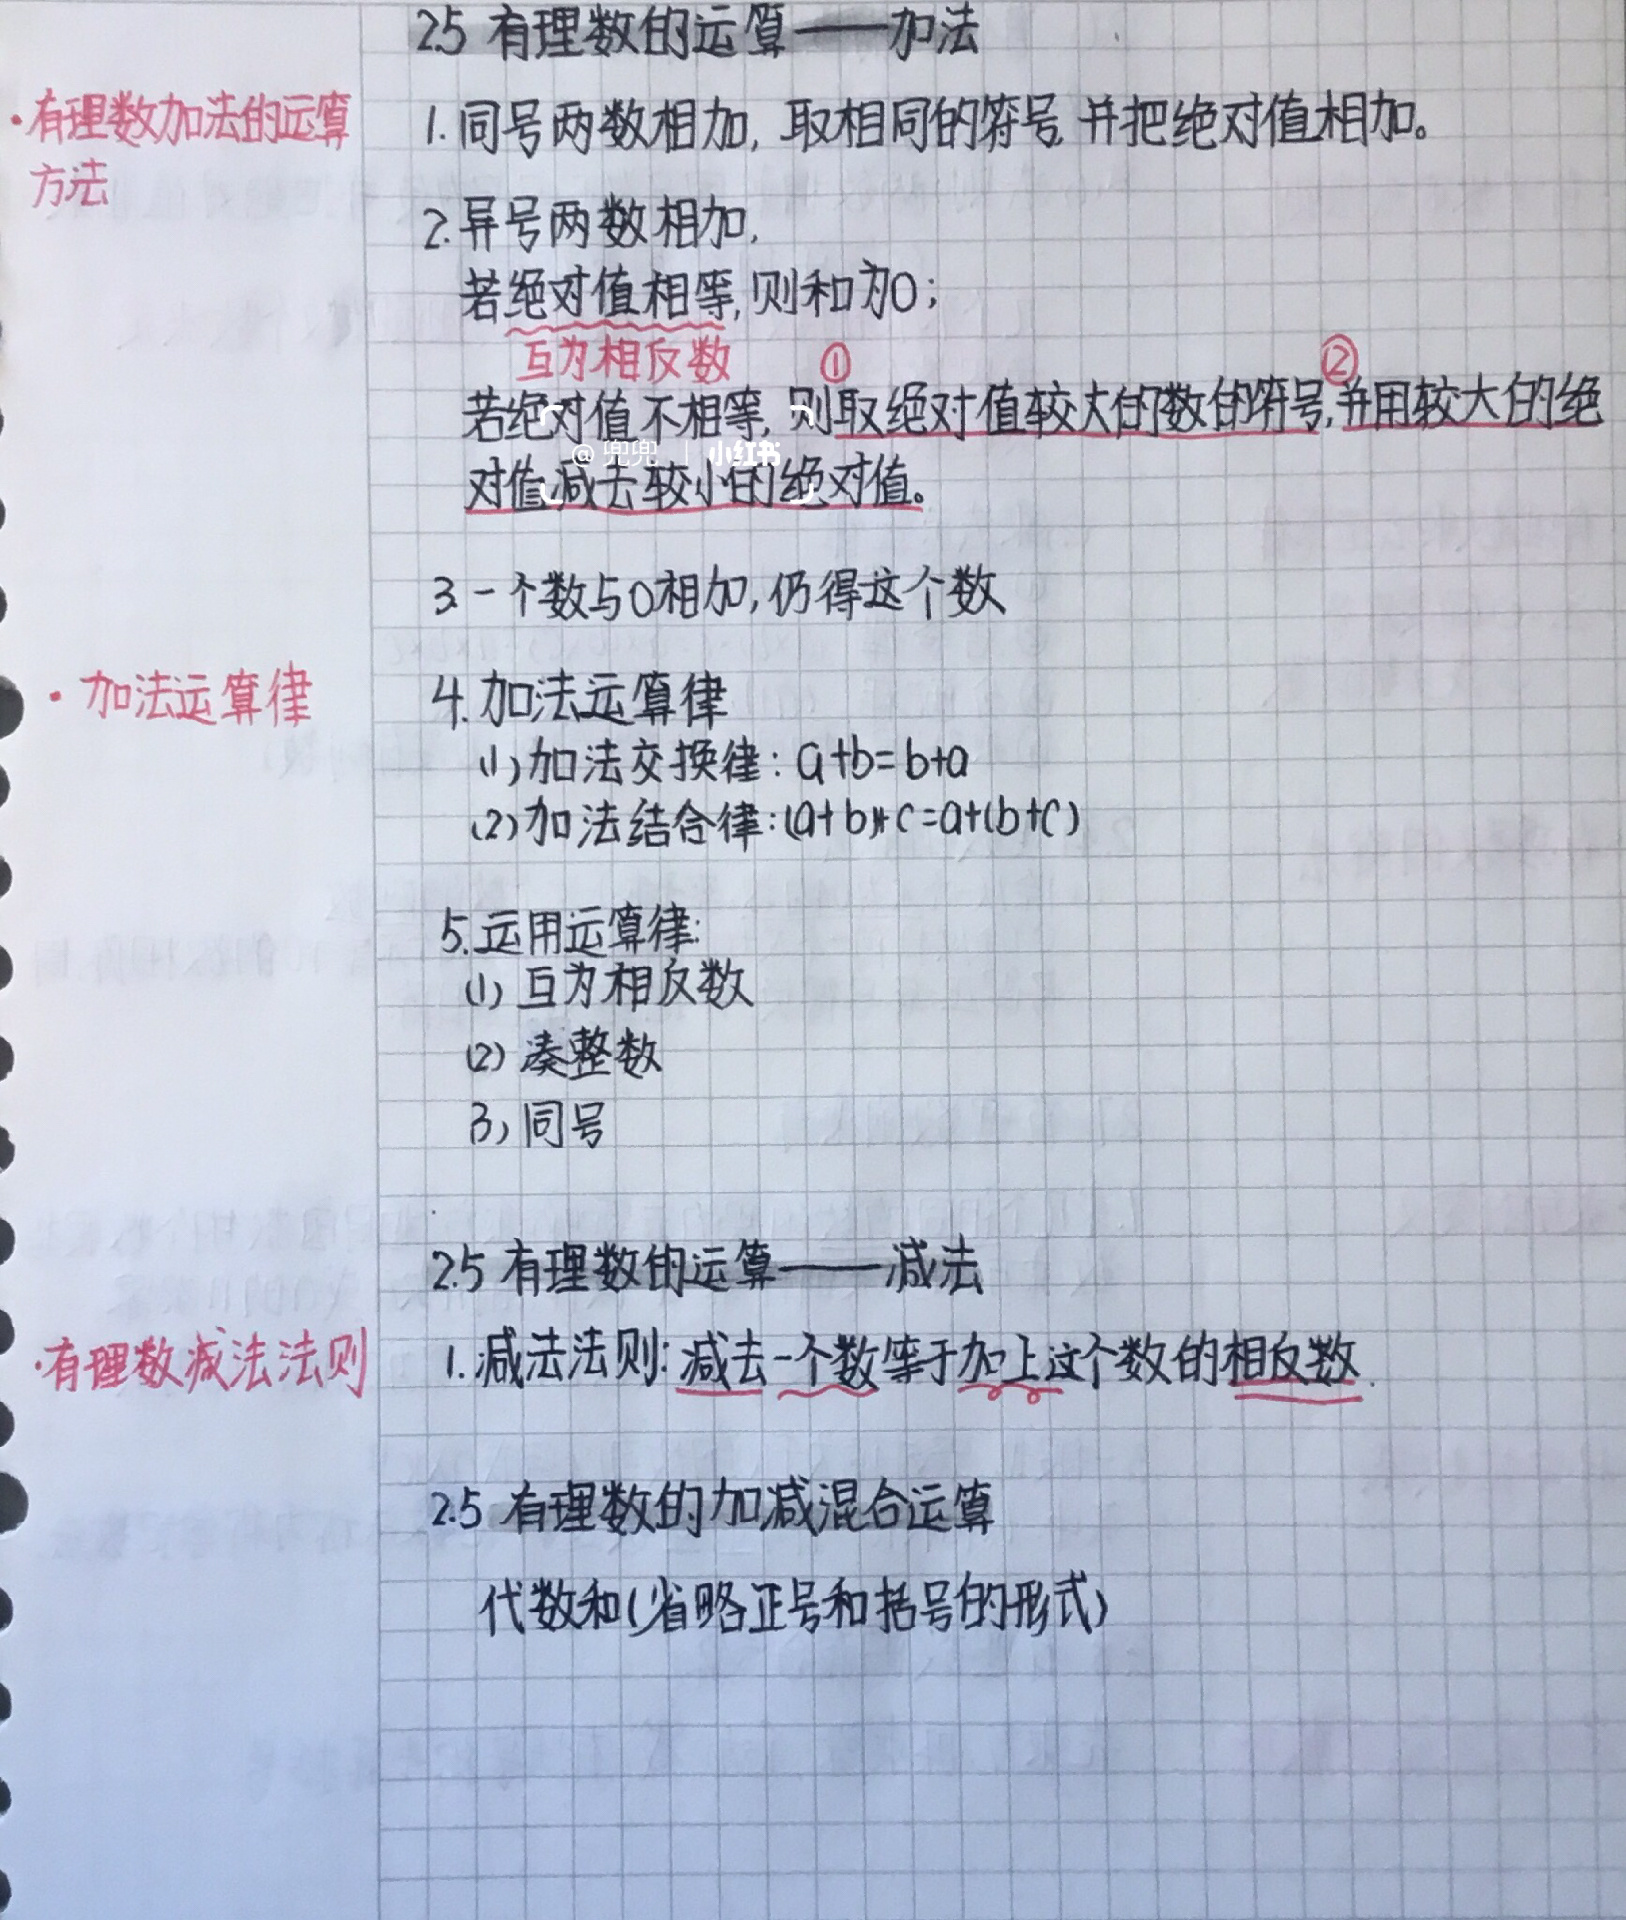 2.5 有理数的运算——加法
·有理数加法的运算
方法
1. 同号两数相加, 取相同的符号, 并把绝对值相加。
2. 异号两数相加,
若绝对值相等, 则和为0;
互为相反数 ① ②
若绝对值不相等, 则取绝对值较大的数的符号, 并用较大的绝
@兜兜 | 小红书
对值减去较小的绝对值。
3. 一个数与0相加, 仍得这个数
·加法运算律
4. 加法运算律
(1) 加法交换律: a+b=b+a
(2) 加法结合律: (a+b)+c=a+(b+c)
5. 运用运算律:
(1) 互为相反数
(2) 凑整数
3) 同号
2.5 有理数的运算——减法
·有理数减法法则
1. 减法法则: 减去一个数等于加上这个数的相反数.
2.5 有理数的加减混合运算
代数和(省略正号和括号的形式)